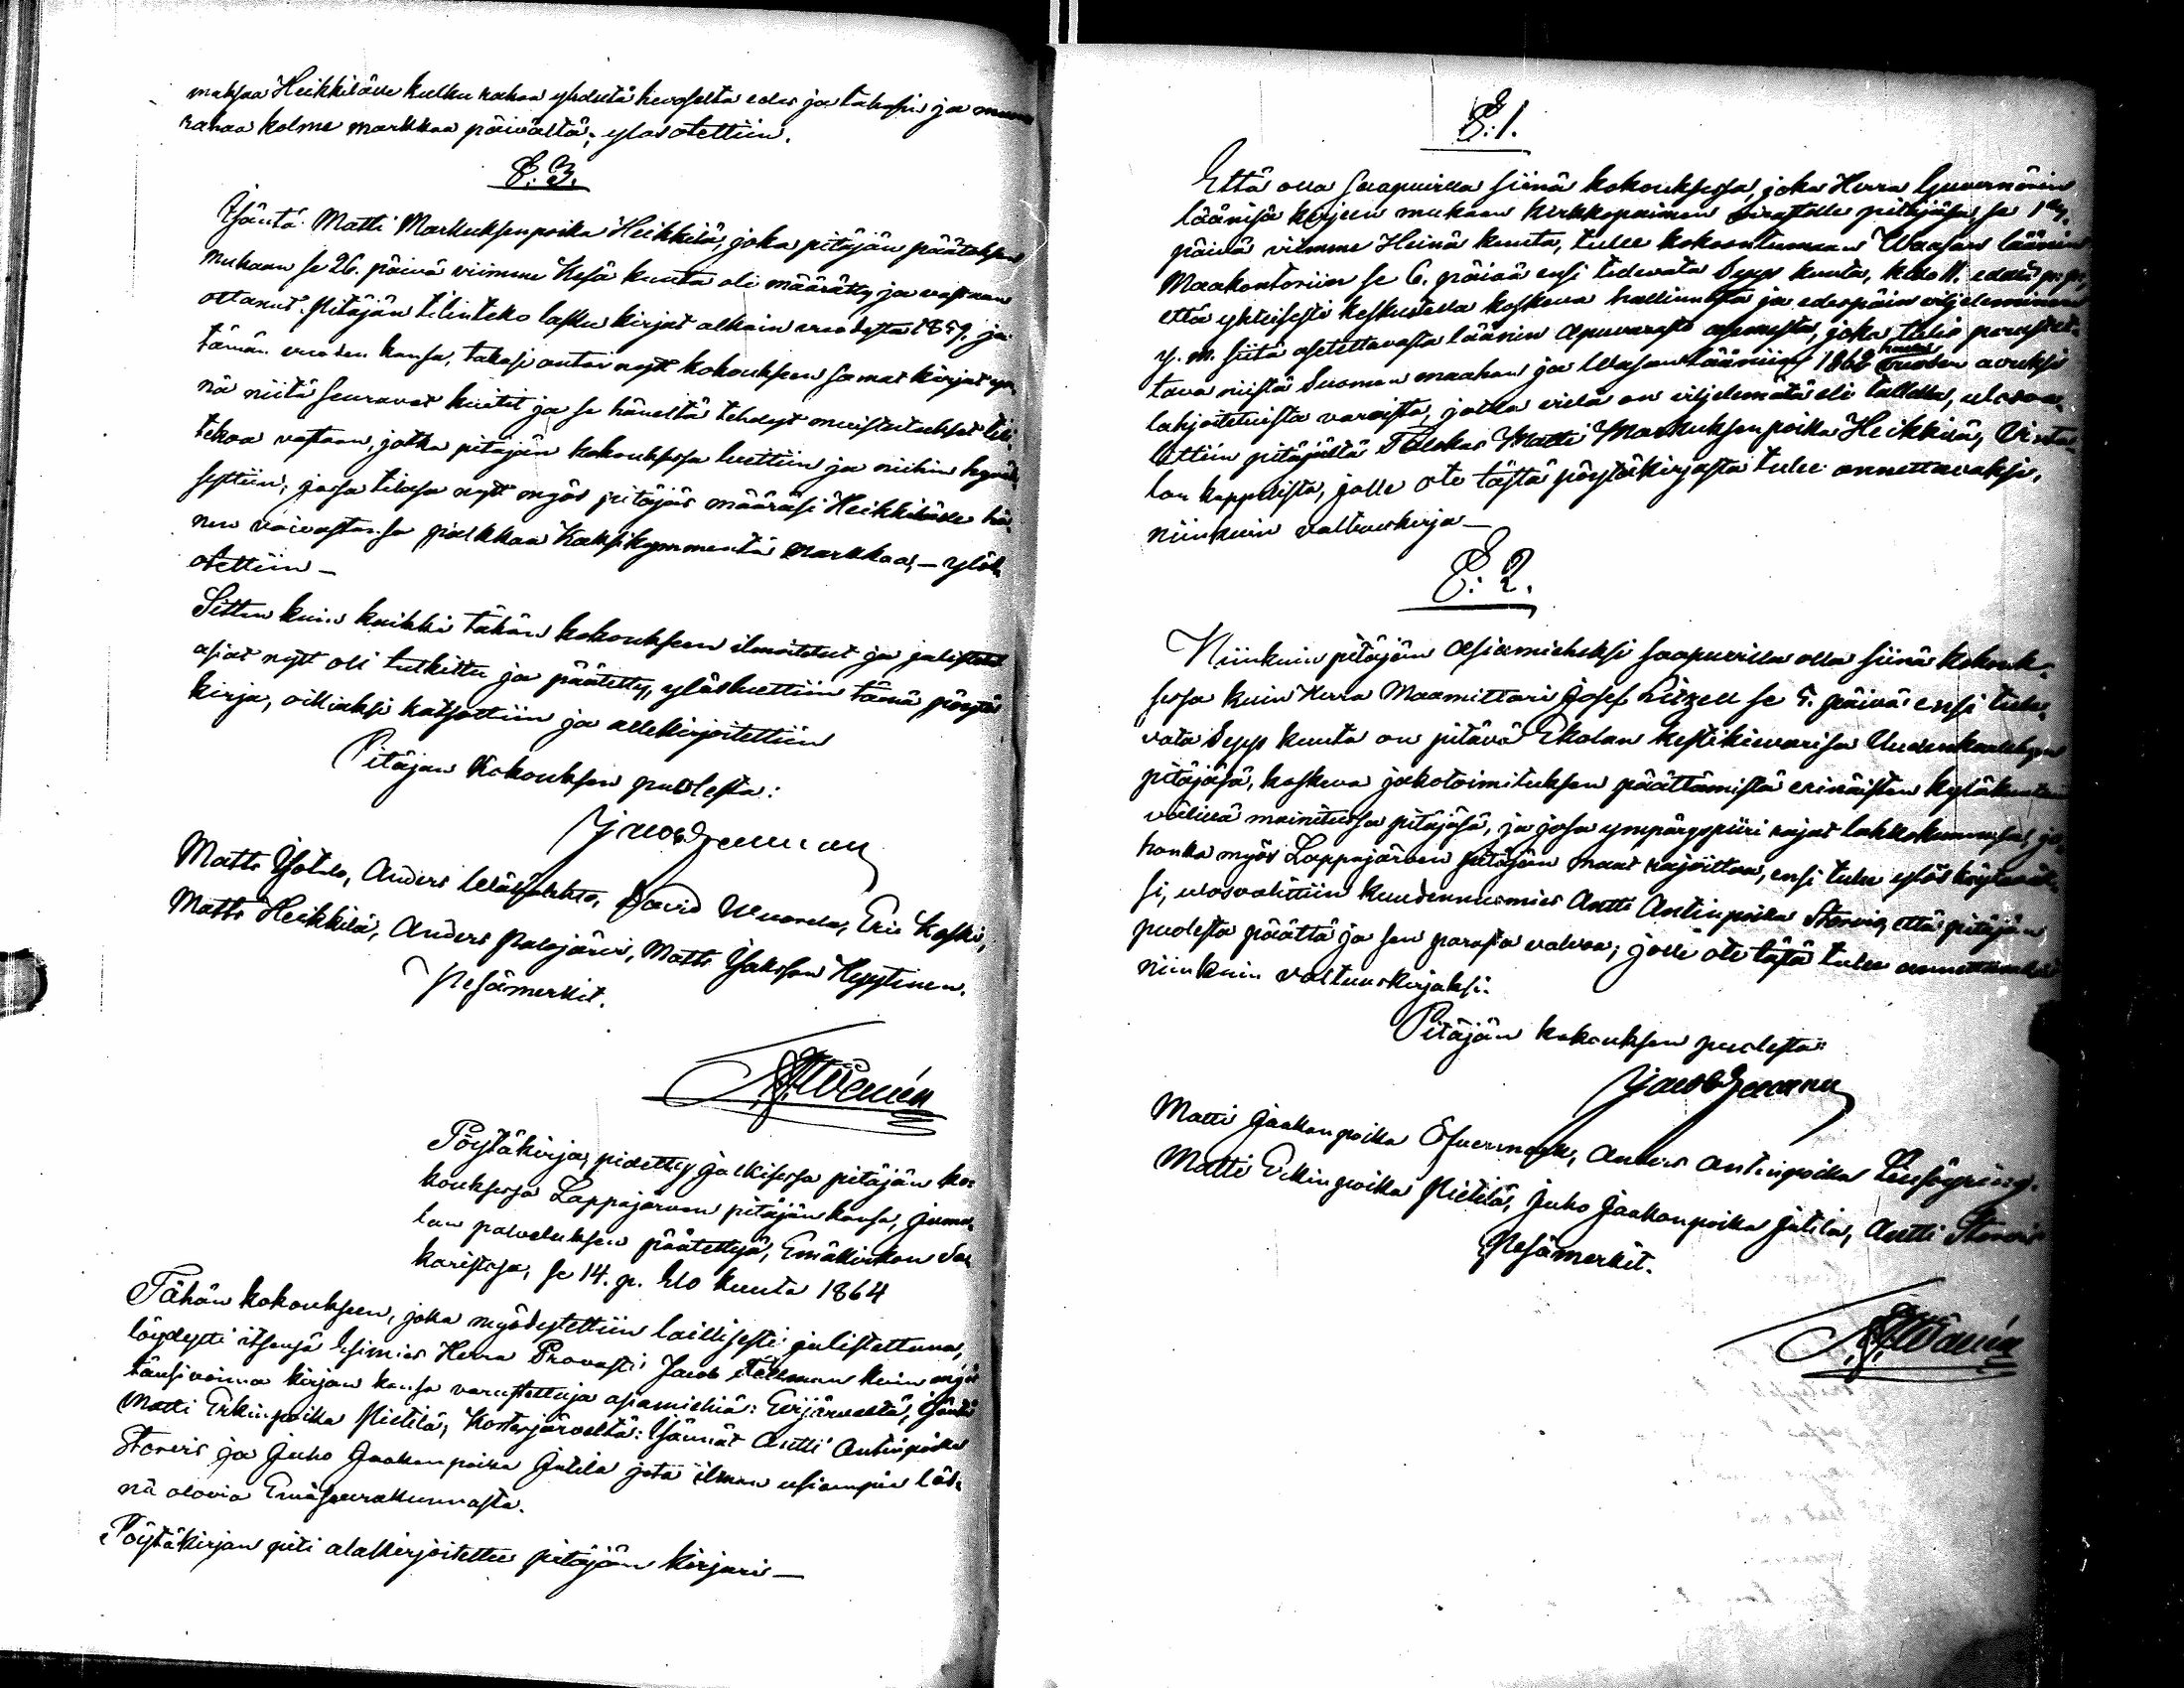 maksaa Heikkilälle kulku rahaa yhdeltä hevoselta edes ja takasin ja
rahaa kolme markkaa päivältä; ylösotettiin.
§: 3.
Isäntä Matti Markuksenpoika Heikkilä, joka pitäjän päätöksen
mukaan se 26. päivä viimme Kesä kuuta oli määrätty ja vastaan
ottanut Pitäjän tilinteko lasku kirjat alkain vuodesta 1859. ja
tämän vuoden kansa, takasi antoi nytt kokoukseen samat kirjat yn-
nä niitä seuravat kuitit ja se häneltä tehdyt muistutukset tili-
tekoa vastaan, jotka pitäjän kokouksessa luettiin ja niihin
tyttiin, jossa tilassa nytt myös pitäjäs määräsi Heikkilälle hä-
nen vaivastansa palkkaa Kaksikymmentä Markkaa, — ylös
otettiin —
Sitten kuin kaikki tähän kokoukseen ilmoitetut ja julistetut
asiat nytt oli tutkittu ja päätetty, ylösluettiin tämä pöytä
kirja, oikiaksi katsottiin ja allekirjoitettiin
Pitäjan Kokouksen puolesta:
Jacob Fellman
Matts Isotalo, Anders Wälijahto, David Wuorela, Eric Koski,
Matts Heikkilä, Anders Palojärvi, Matts Isaksson Hyytinen.
Pesämerkit.
Pöytäkirja, pidetty julkisessa pitäjän ko-
kouksessa Lappajärven pitäjän kansa, Juma-
lan palveluksen päätettyä, Emäkirkon Sa-
karistosa, se 14. p. Elo kuuta 1864
Tähän kokoukseen, joka myödystettiin laillisesti julistettuna,
löydysti itsensä Esimies Herra Provasti Jacob Fellman kuin myös
täusivoima kirjan kansa varustettuja asiamiehiä: Evijärveltä, Isäntä
Matti Erkinpoika Pietilä; Kortesjärveltä: Isännät Antti Antinpoika
Storvis ja Juho Jaakonpoika Jutila jota ilman usiampia läs-
nä olovia Emäseurakunnasta.
Pöytäkirjan piti alaskirjoitettu pitäjän kirjuri —
§: 1.
Että olla saapuvilla siinä kokouksessa, joka Herra Guvernörin
läänisä kirjeen mukaan Kirkkopaimen virastolle pitäjäsä se 1
päivä viimme Heinä kuuta, tulee kokoontumaan Waasan läänin
Maakontoriin se 6. päivä ensi tulevata Sypys kuuta, kello 11. eddels p. p.,
että yhteisesti keskustella koskeva hallinnosta ja edespäin viljeleminen
y. m. siitä asetettavasta läänin Apuvarasto asemista, joka tulis perustet-
tava niistä Suomen maahan ja Wasan Lääniin 1862 vuoden avuksi
lahjoitetuista varoista, jotka vielä on viljelemätä eli tallella, ulosva-
littiin pitäjältä Talokas Matti Markuksenpoika Heikkilä, Vinta-
lan kappelista, jolle ote tästä pöytäkirjasta tulee annettavaksi,
niinkuin valtuuskirja —
§: 2.
Niinkuin pitäjän Asiamieheksi saapuvilla olla siinä kokouk-
sessa kuin Herra Maamittari Josef Litzell se 5. päivä ensi tule-
vata Sypys kuuta on pitävä Ekolan kestikievarissa Uudenkaarlebyyn
pitäjäsä, koskeva jakotoimituksen päättämistä erinäisten kyläkuntain
välillä mainitussa pitäjäsä, ja josa ympäryspiiri rajat lohkokunnissa, jo-
honka myös Lappajärven pitäjän maat rajoittaa, ensi tulee ylös käytäväk-
si, ulosvalittiin kuudennusmies Antti Antinpoika Storvis, että pitäjän
puolesta päättä ja sen parasta valvoa; jolle ote tästä tulee annettavaksi
niinkuin valtuuskirjaksi.
Pitäjän kokouksen puolesta:
Jacob Fellman
Matti Jaakonpoika Öfvermark, Anders Antinpoika
Matti Erkinpoika Pietilä, Juho Jaakonpoika Jutila, Antti Storvis
Pesämerkit.